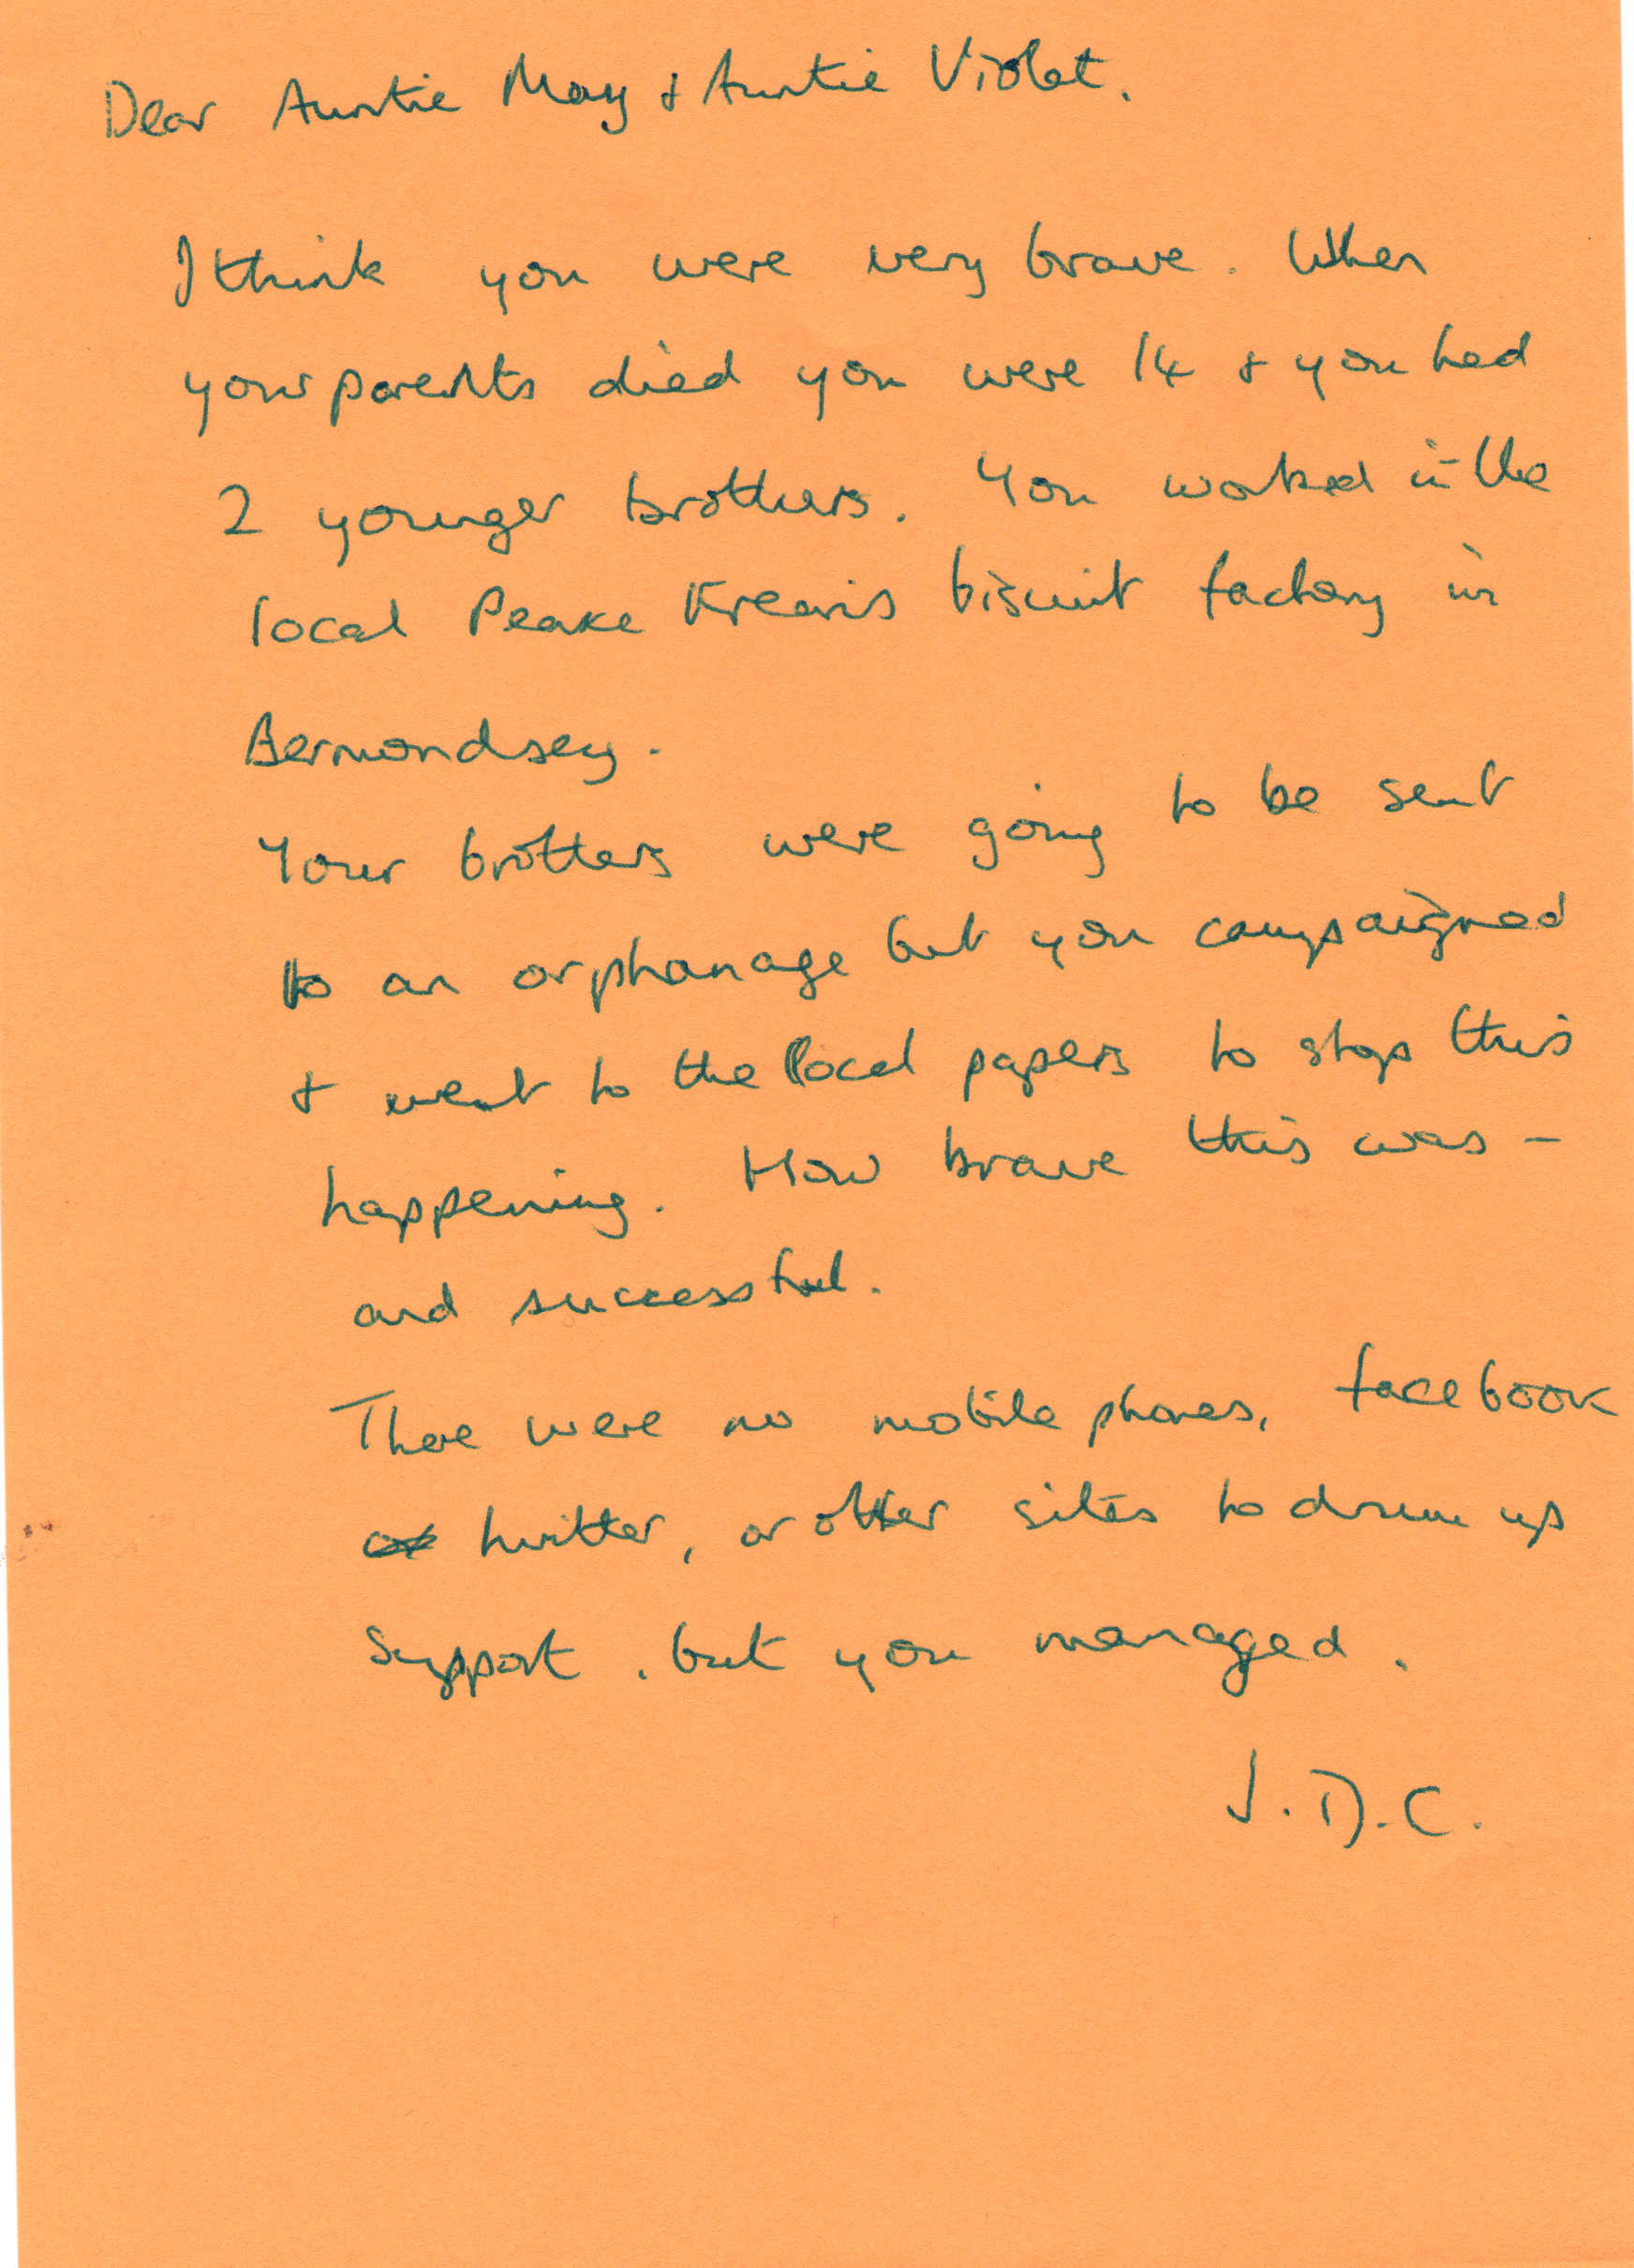 Dear Auntie May & Auntie Violet.
I think you were very brave. When
your parents died you were 14 & you had
2 younger brothers. You worked in the
local Peake Freans biscuit factory in
Bermondsey.
Your brothers were going to be sent
to an orphanage but you campaigned
& went to the local papers to stop this
happening. How brave this was –
and successful.
There were no mobile phones, facebook
twitter, or other sites to drum up
support. but you managed.
J.D.C.